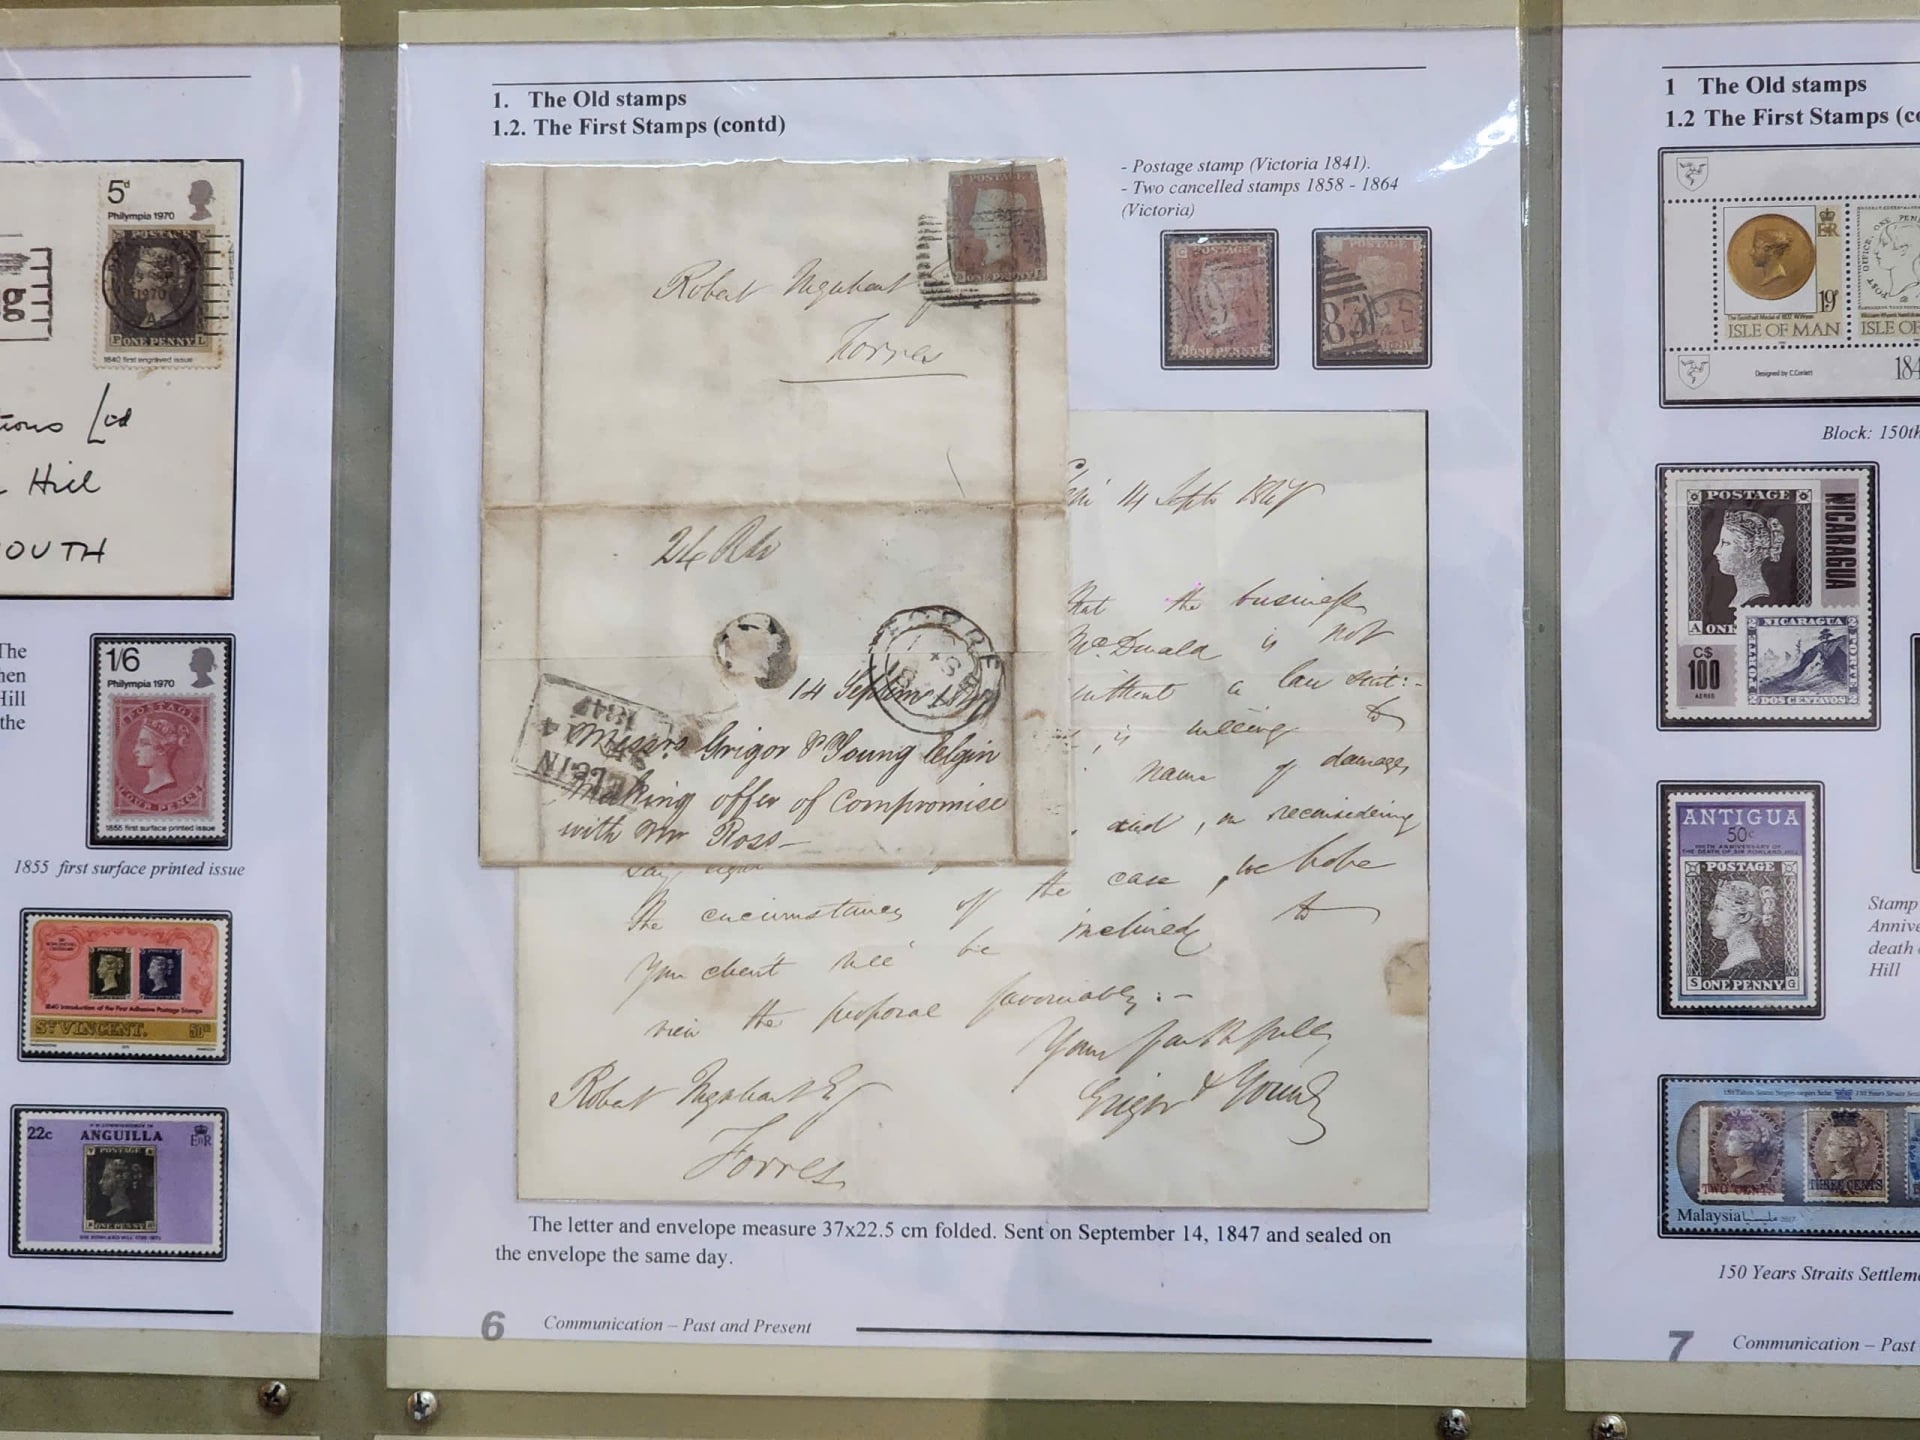 5d
Philympia 1970
1970
ONE PENNY
1840 first engraved issue
Ltd
Hill
OUTH
The
Hill
the
1/6
Philympia 1970
POSTAGE
FOUR PENCE
1855 first surface printed issue
1855 first surface printed issue
1840 Introduction of the First Adhesive Postage Stamps
ST VINCENT.
50c
22c
ANGUILLA
POSTAGE
ONE PENNY
1. The Old stamps
1.2. The First Stamps (contd)
- Postage stamp (Victoria 1841).
- Two cancelled stamps 1858 - 1864
(Victoria)
POSTAGE
ONE PENNY
POSTAGE
ONE PENNY
POSTAGE
Robert
Forres
14 Septr 1847
that the business
McDonald is not
without a law suit:-
is willing to
name of damages
and, on reconsidering
the circumstances of the case, we hope
your client will be inclined to
view the proposal favourably:-
Yours faithfully
Grigor & Young
Robert
Forres
FORRES
14 Septemr 1847
ELGIN
1847
Messrs Grigor & Young Elgin
Making offer of Compromise
with Mr Ross-
The letter and envelope measure 37x22.5 cm folded. Sent on September 14, 1847 and sealed on
the envelope the same day.
6 Communication – Past and Present
1 The Old stamps
1.2 The First Stamps (co
19p
ISLE OF MAN
ISLE OF
Designed by C.Corlett
184
Block: 150th
POSTAGE
NICARAGUA
A ONE
C$
100
AEREO
NICARAGUA
PORTE
PORTE
DOS CENTAVOS
ANTIGUA
50c
100TH ANNIVERSARY OF
THE DEATH OF SIR ROWLAND HILL
POSTAGE
S ONE PENNY G
Stamp
Annive
death
Hill
TWO CENTS
THREE CENTS
Malaysia
2017
150 Years Straits Settleme
7 Communication – Past